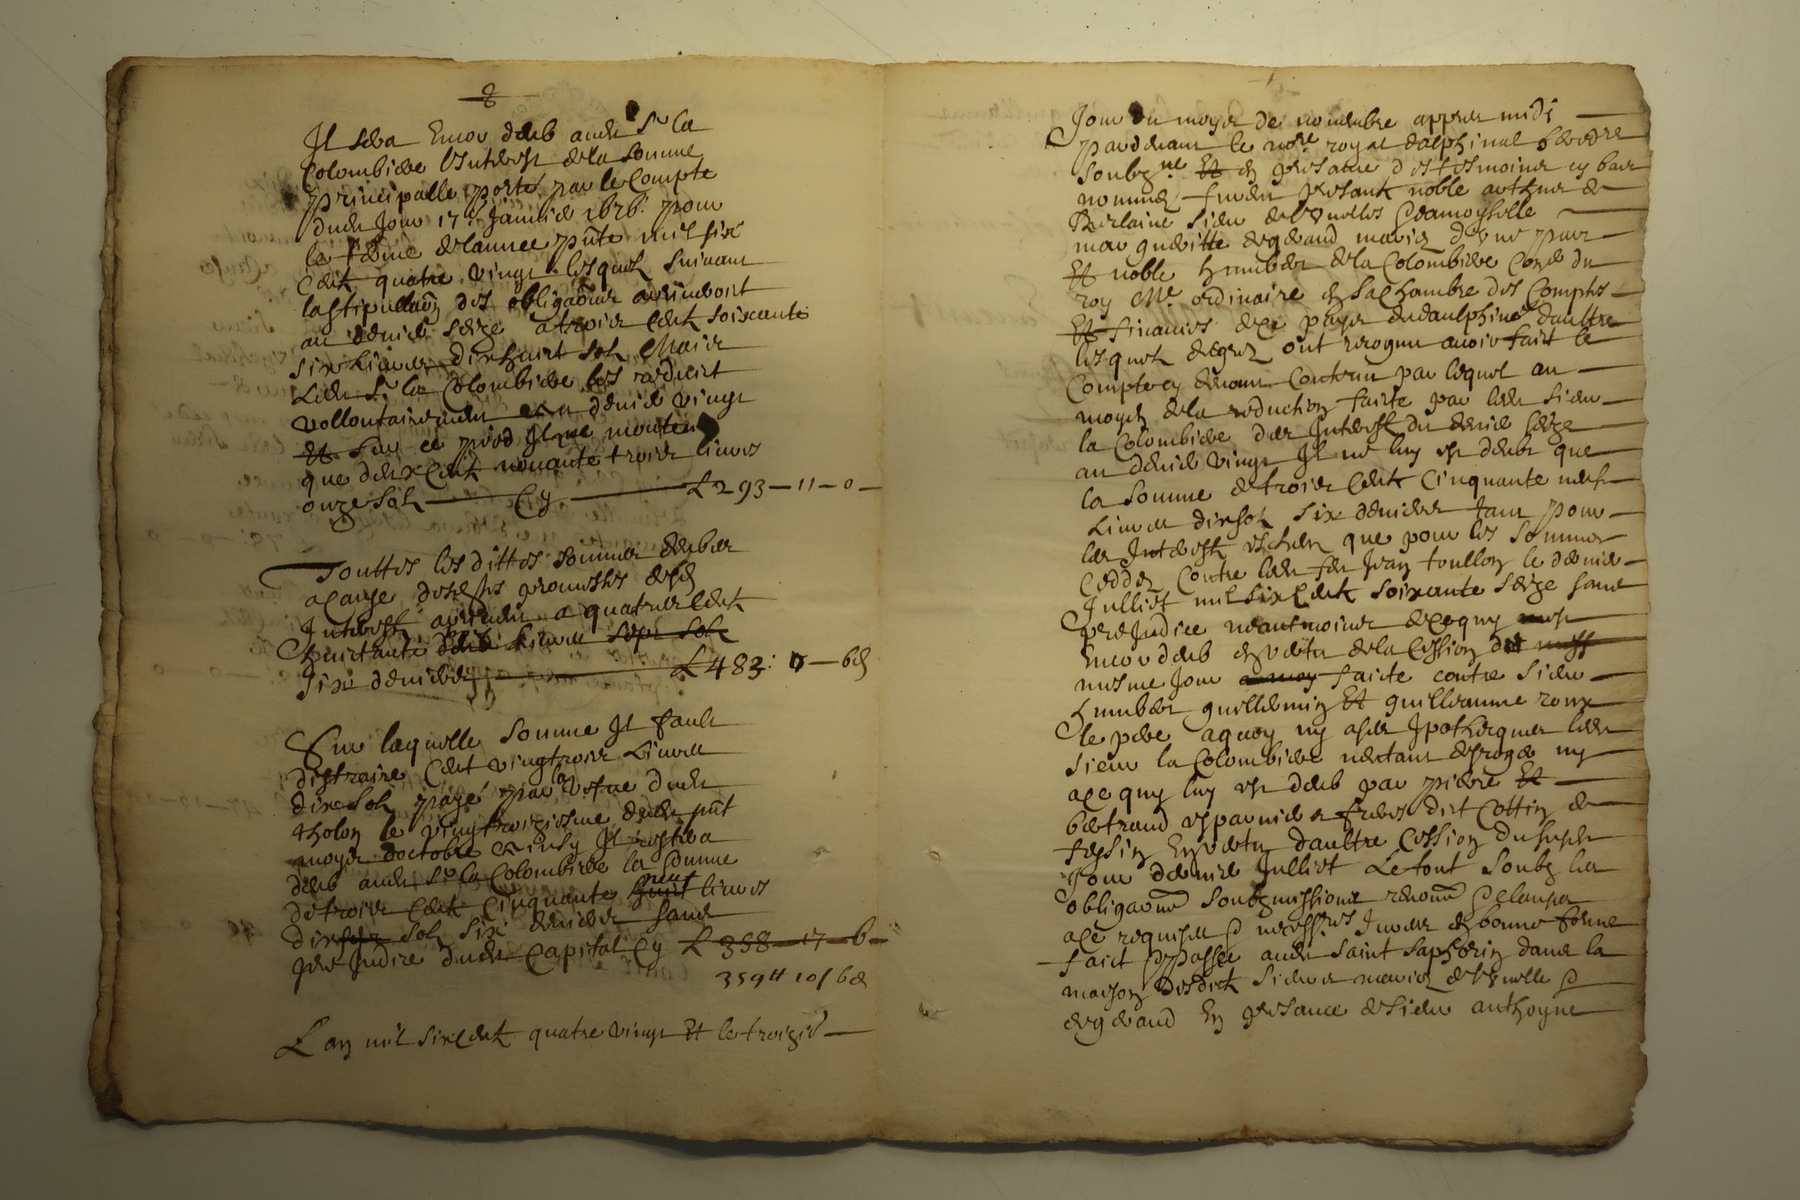 8
Il sera encor deub audit Sr la
Colombiere linterest de la somme
principalle porté par le Compte
dudit Jour 17e Janvier 1676. pour
le terme de lannee pnte mil six
Cent quatre vingt lesquels suivant
la stipullaon des obligaons arriveroit
au denier seize a trois Cent soixante
six Livres dixhuict sols Mais
Ledit Sr la Colombiere les reduict
vollontairement au denier vingt
Et sur ce pied Il ne montent
que deux Cent nonante trois livres
onze sols Cy L 293 - 11 - 0 -
Touttes lesdittes sommes deubes
a cause desdites promesses et
Interest arrivent a quatre Cent
huictante livres sept sols
six deniers L 483 : 0 - 6d
Sur laquelle somme Il fault
distraire Cent vingtrois Livres
dix sols payé par la vefve dudit
tholon le vingtroiziesme dudit pnt
moys doctobre Ainsy Il restera
deub audit Sr la Colombiere la somme
de trois Cent Cinquante huict neuf livres
dix sept sols six deniers sans
prejudice dudit Capital Cy L 358 - 17 - 6 -
359 lt 10 s 6 d
L an mil six Cent quatre vingt Et le troizie
Jour du moys de novembre appres midi
pardevant le nore royal dalphinal heredre
soubzne Et en presance des tesmoins cy bas
nommes furent presants noble arthus de
sieur de Venelles & damoyselle
margueritte deyraud maries dune part
Et noble humbert de la Colombiere Coner du
roy Me ordinaire en sa Chambre des Comptes
Et finances de ce pays de daulphiné daultre
lesquels de gré ont recogneu avoir faict le
Compte cy devant Contenu par lequel au
moyen de la reduction faicte par ledit sieur
la Colombiere des Interest du denier seize
au denier vingt Il ne luy est deub que
la somme de trois Cent Cinquante neuf
Livres dix sols six deniers tant pour
les Interest escheus que pour les sommes
Ceddes Contre ledit feu Jean toullon le dernier
Julliet mil six Cent soixante seize sans
prejudice neantmoins de ce quy est
encor deub en vertu de la Cession du
mesme Jour a moy faicte contre Sieur
humbert guillermin Et guillaume roux
le pere a quoy ny a ses Ipotheques ledit
sieur la Colombiere nentant desroger ny
a ce quy luy est deub par pierre Et
bertrand esparvier freres dict Cottin de
fessin En vertu daultre Cession du susdit
Jour dernier Julliet Le tout soubz les
obligaons soubzmissions renons & clauses
a ce requises & necessres Jures en bonne forme
faict & passé audit saint saphorin dans la
maison desdits sieurs maries de Venelle &
deyraud En presance de sieur anthoyne